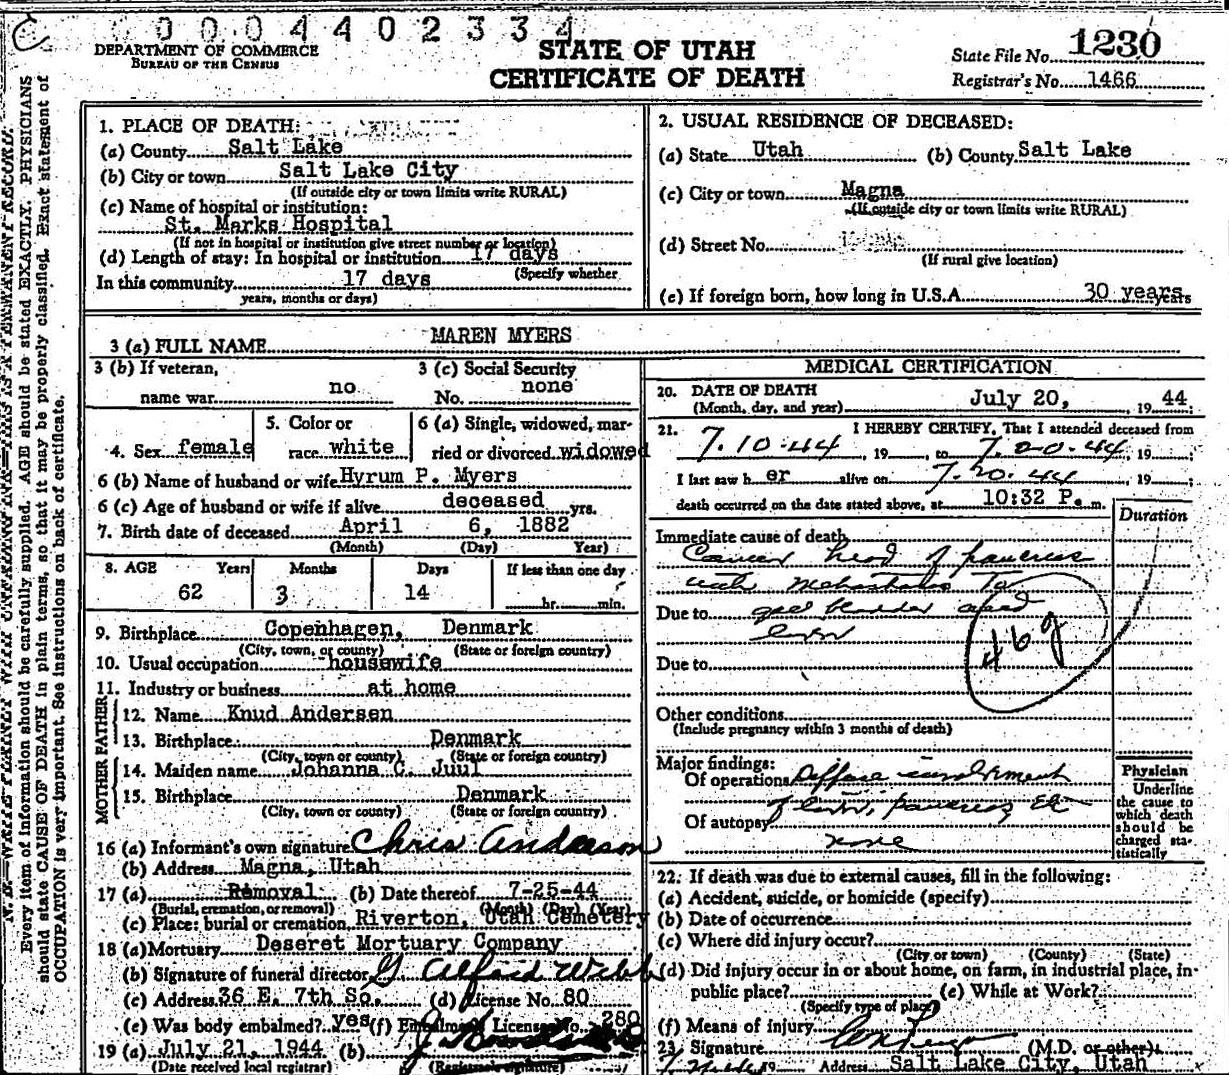 0 0 0 4 4 0 2 3 3 4
DEPARTMENT OF COMMERCE
BUREAU OF THE CENSUS
STATE OF UTAH
CERTIFICATE OF DEATH
State File No. 1230
Registrar's No. 1466
N. B.—WRITE PLAINLY WITH UNFADING INK—THIS IS A PERMANENT RECORD.
Every item of information should be carefully supplied. AGE should be stated EXACTLY. PHYSICIANS
should state CAUSE OF DEATH in plain terms, so that it may be properly classified. Exact statement of
OCCUPATION is very important. See instructions on back of certificate.
1. PLACE OF DEATH:
(a) County Salt Lake
(b) City or town Salt Lake City
(If outside city or town limits write RURAL)
(c) Name of hospital or institution:
St. Marks Hospital
(If not in hospital or institution give street number or location)
(d) Length of stay: In hospital or institution 17 days
(Specify whether
In this community 17 days
years, months or days)
2. USUAL RESIDENCE OF DECEASED:
(a) State Utah (b) County Salt Lake
(c) City or town Magna
(If outside city or town limits write RURAL)
(d) Street No.
(If rural give location)
(e) If foreign born, how long in U.S.A. 30 years years
3 (a) FULL NAME MAREN MYERS
3 (b) If veteran,
name war no
3 (c) Social Security
No. none
4. Sex female
5. Color or
race white
6 (a) Single, widowed, mar-
ried or divorced widowed
6 (b) Name of husband or wife Hyrum P. Myers
6 (c) Age of husband or wife if alive deceased yrs.
7. Birth date of deceased April 6, 1882
(Month) (Day) Year)
8. AGE Years Months Days If less than one day
62 3 14 hr. min.
9. Birthplace Copenhagen, Denmark
(City, town, or county) (State or foreign country)
10. Usual occupation housewife
11. Industry or business at home
FATHER
12. Name Knud Andersen
13. Birthplace Denmark
(City, town or county) (State or foreign country)
MOTHER
14. Maiden name Johanna C. Juul
15. Birthplace Denmark
(City, town or county) (State or foreign country)
16 (a) Informant's own signature Chris Anderson
(b) Address Magna, Utah
17 (a) Removal (b) Date thereof 7-25-44
(Burial, cremation, or removal) (Month) (Day) (Year)
(c) Place: burial or cremation Riverton, Utah Cemetery
18 (a) Mortuary Deseret Mortuary Company
(b) Signature of funeral director G Alfred Webb
(c) Address 36 E. 7th So. (d) License No. 80
(e) Was body embalmed? yes (f) Embalmer's License No. 280
19 (a) July 21, 1944 (b)
(Date received local registrar) (Registrar's signature)
MEDICAL CERTIFICATION
20. DATE OF DEATH
(Month, day, and year) July 20, 19 44
21. I HEREBY CERTIFY, That I attended deceased from
7.10.44, 19 , to 7.20.44, 19 ;
I last saw h er alive on 7.20.44, 19 ;
death occurred on the date stated above, at 10:32 P. m.
Duration
Immediate cause of death
Cancer head of pancreas
with metastasis to
Due to gall bladder and
liver
46g
Due to
Other conditions
(Include pregnancy within 3 months of death)
Major findings:
Of operations Diffuse involvement
of liver, pancreas, etc
Of autopsy
none
Physician
Underline
the cause to
which death
should be
charged sta-
tistically
22. If death was due to external causes, fill in the following:
(a) Accident, suicide, or homicide (specify)
(b) Date of occurrence
(c) Where did injury occur?
(City or town) (County) (State)
(d) Did injury occur in or about home, on farm, in industrial place, in
public place? (e) While at Work?
(Specify type of place)
(f) Means of injury
23. Signature (M.D. or other)
Address Salt Lake City, Utah